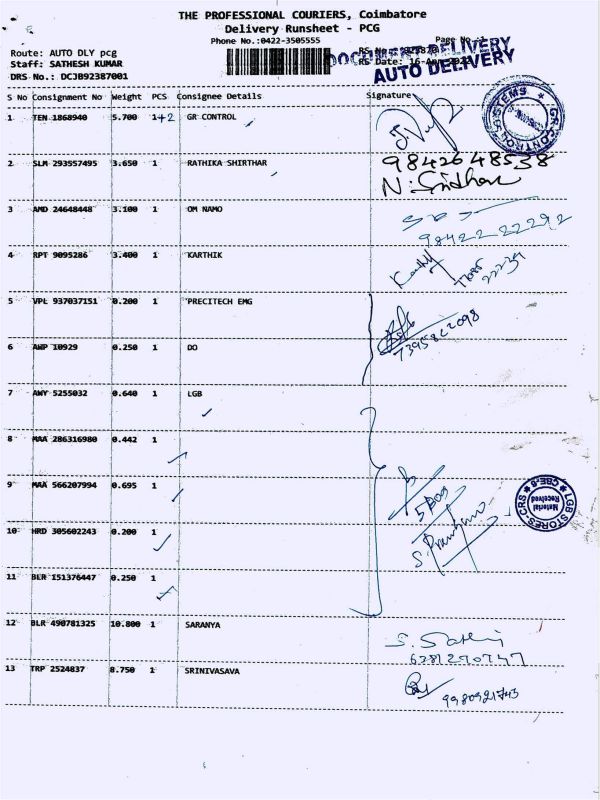 THE PROFESSIONAL COURIERS, Coimbatore
Delivery Runsheet - PCG
Phone No.:0422-3505555
Page No.:1
Route: AUTO DLY pcg
Staff: SATHESH KUMAR
DRS No.: DCJB92387001
RS No.:
RS Date: 16-Apr-2022
DOCUMENT DELIVERY
AUTO DELIVERY
S No Consignment No Weight PCS Consignee Details Signature
1 TEN 1868940 5.700 1+2 GR CONTROL
GR CONTROL SYSTEMS
2 SLM 293557495 3.650 1 RATHIKA SHIRTHAR 9842648538
N. Sridhar
3 AMD 24648448 3.100 1 OM NAMO
98422 22292
4 RPT 9095286 3.400 1 KARTHIK Karthik
22239
5 VPL 937037151 0.200 1 PRECITECH EMG
7395822098
6 AWP 10929 0.250 1 DO
7 AWY 5255032 0.640 1 LGB
8 MAA 286316980 0.442 1
9 MAA 566207994 0.695 1
LGB STORES-CRS
Material
Received
CBE-6
10 HRD 305602243 0.200 1
11 BLR 151376447 0.250 1
12 BLR 490781325 10.800 1 SARANYA S. Sathij
6381270747
13 TRP 2524837 8.750 1 SRINIVASAVA
9980921743